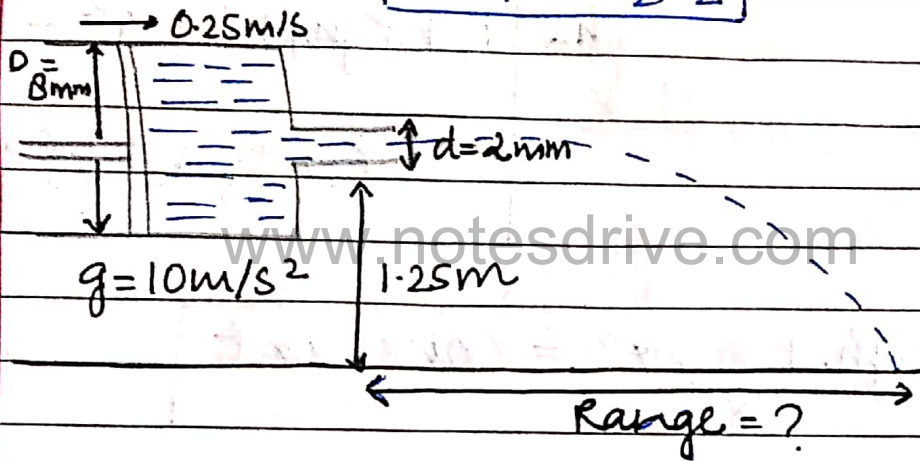 → 0.25m/s
D =
8mm
d=2mm
www.notesdrive.com
g=10m/s²
1.25m
Range = ?